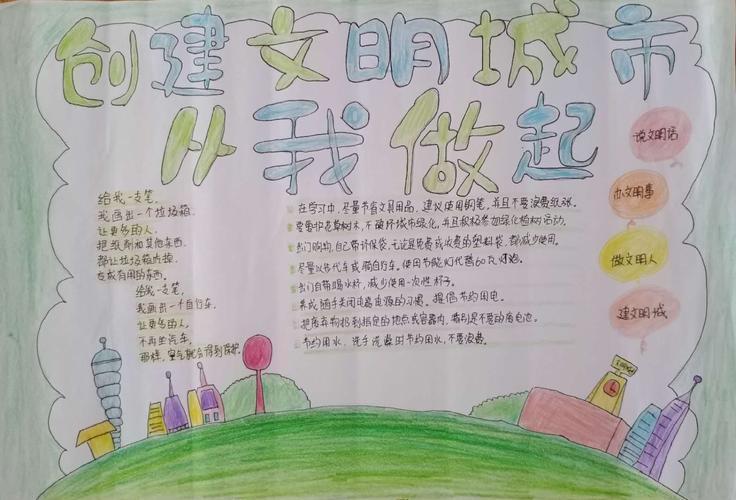 创建文明城市
从我做起
给我一支笔,
我画出一个垃圾箱.
让更多的人,
把纸剂和其他东西.
都让垃圾箱
变成有用的东西.
给我一支笔,
我画出一个自行车.
让更多的人,
不再坐汽车,
那样,空气就会得到保护.
在学习中,尽量节省文具用品,建议使用钢笔,并且不要浪费纸张.
要爱护花草树木,不破坏城市绿化,并且积极参加绿化植树活动.
出门购物,自己带环保袋,无论是免费或收费的塑料袋,都减少使用.
尽量以步代车或骑自行车.使用节能灯代替60瓦灯泡.
出门自带喝水杯,减少使用一次性杯子.
养成随手关闭电器电源的习惯.提倡节约用电.
把废弃物扔到指定的地点或容器内,特别是不要的废电池.
节约用水,洗手洗 时节约用水,不要浪费.
说文明话
办文明事
做文明人
建文明城